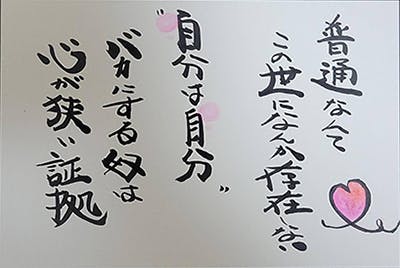 普通なんて
この世になんか存在しない
"自分は自分"
バカにする奴は
心が狭い証拠